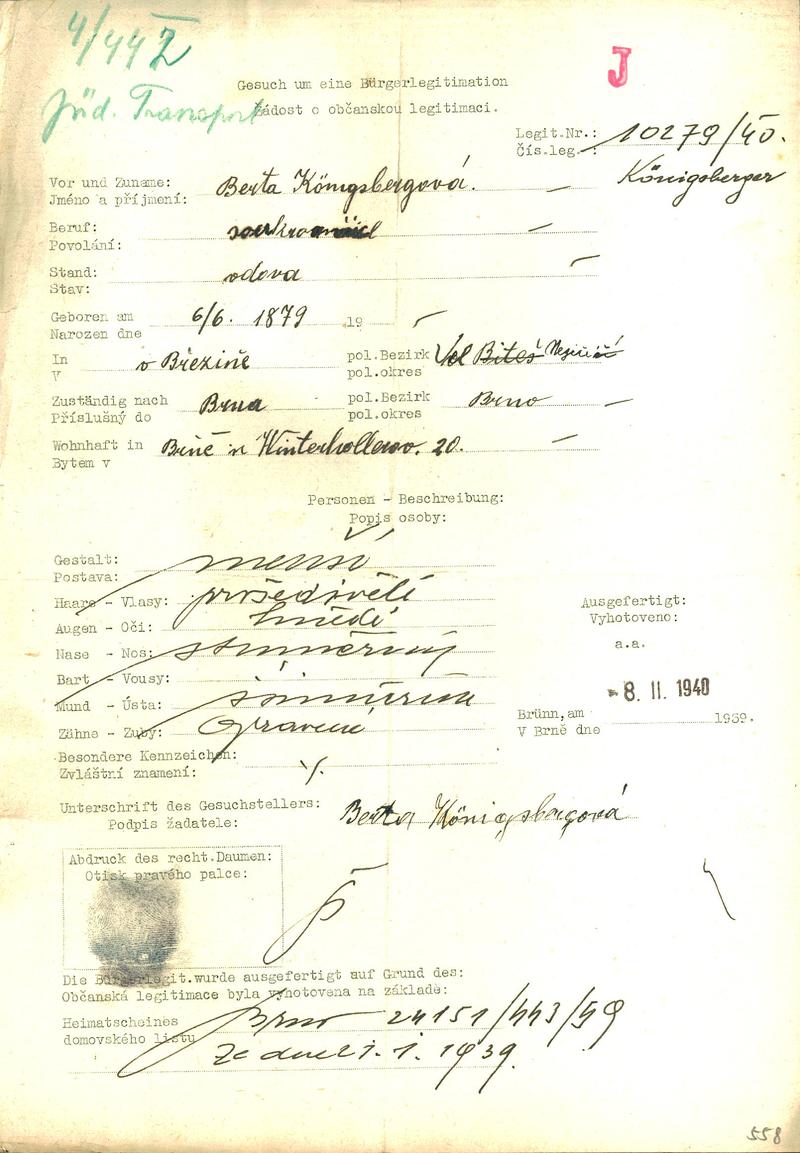 4/44 Z
Jüd. Transport
J
Gesuch um eine Bürgerlegitimation
Žádost o občanskou legitimaci.
Legit.Nr.: 10279/40.
Čís.leg.:
Königsberger
Vor und Zuname: Berta Königsbergová.
Jméno a příjmení:
Beruf:
Povolání:
Stand: vdova
Stav:
Geboren am 6/6. 1879 19
Narozen dne
In v Březině pol.Bezirk Vel Biteš
V pol.okres
Zuständig nach Brna pol.Bezirk Brno
Příslušný do pol.okres
Wohnhaft in Brně Winterhollerov. 20.
Bytem v
Personen - Beschreibung:
Popis osoby:
Gestalt: menší
Postava:
Haare - Vlasy: prošedivělé
Augen - Oči: hnědé
Nase - Nos: souměrný
Bart - Vousy:
Mund - Ústa: souměrná
Zähne - Zuby: opravené
Besondere Kennzeichen:
Zvláštní znamení:
Ausgefertigt:
Vyhotoveno:
a.a.
-8. II. 1940
Brünn, am 1939.
V Brně dne
Unterschrift des Gesuchstellers: Berta Königsbergová
Podpis žadatele:
Abdruck des recht.Daumen:
Otisk pravého palce:
Die Bürgerlegit.wurde ausgefertigt auf Grund des:
Občanská legitimace byla vyhotovena na základě:
Heimatscheines Brno 24151/443/59
domovského listu
Ze dne 21. 1. 1939.
558